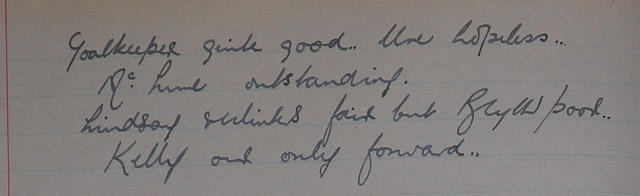 Goalkeeper quite good.. Ure hopeless..
Mc. Lune outstanding.
Lindsay reliable fair but Blyth poor..
Kelly our only forward..